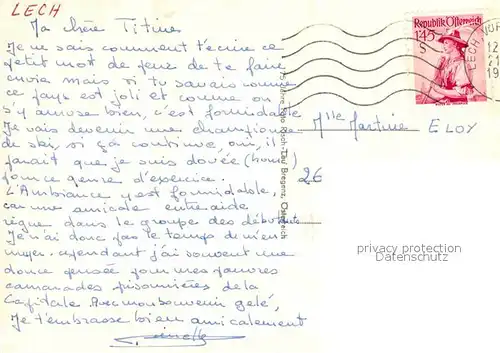 LECH
Ma chère Titine
Je ne sais comment t'écrire ce
petit mot de peur de te faire
envie mais si tu savais comme
ce pays est joli et comme on
s'y amuse bien, c'est formidable
Je vais devenir une championne
de ski, si ça continue, oui, il
parait que je suis douée (hum!)
pour ce genre d'exercice.
L'Ambiance y est formidable,
car une amicale entraide
règne dans le groupe des débutants
Je n'ai donc pas le temps de m'en-
nuyer. cependant j'ai souvent une
douce pensée pour mes pauvres
camarades prisonnières de la
Capitale. Avec mon souvenir gelé,
Je t'embrasse bien amicalement
Risch-Lau Bregenz, Österreich
Republik Österreich
1.45
S
LECH
12
21
19
Mlle Martine ELOY
26
privacy protection
Datenschutz